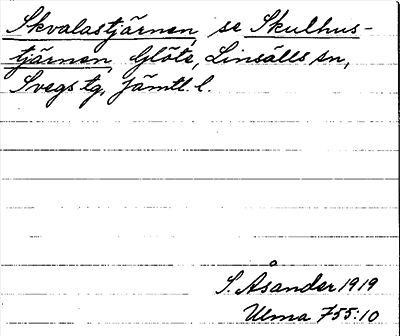 Skvalastjärnen, se Skulhus-
tjärnen, Glöte, Linsälls sn,
Svegs tg, Jämtl. l.
S. Åsander 1919
Ulma 755:10